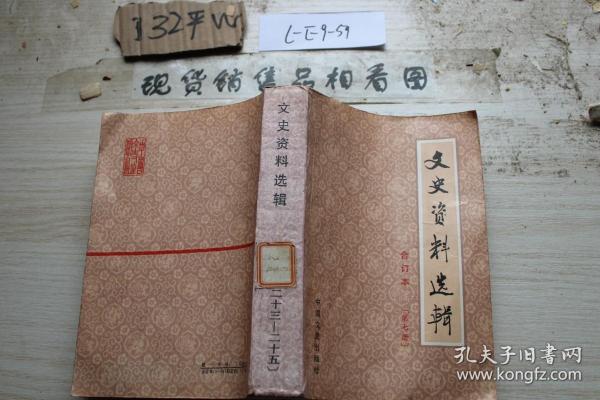 132平W
L-I-9-59
现货销售品相看图
文史资料选辑
二十三—二十五
文史资料选辑
合订本
〔第七册〕
中国文史出版社
孔夫子旧书网
www.kongfz.com